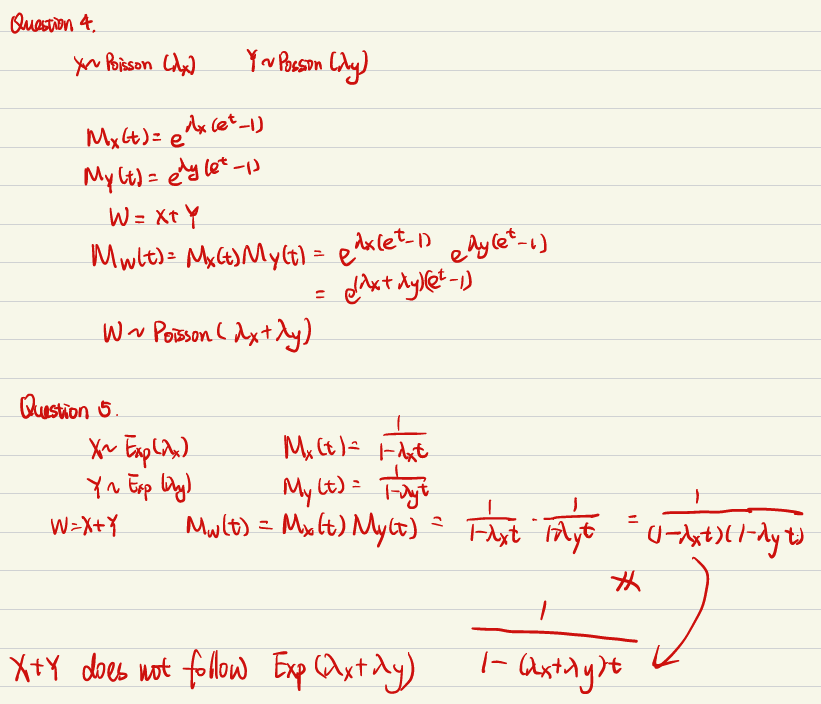 Question 4.
X~ Poisson (λx) Y~ Poisson (λy)
Mx(t) = e^λx(e^t-1)
My(t) = e^λy(e^t-1)
W = X+Y
Mw(t) = Mx(t) My(t) = e^λx(e^t-1) e^λy(e^t-1)
= e^(λx+λy)(e^t-1)
W ~ Poisson ( λx+λy)
Question 5.
X~ Exp(λx) Mx(t) = 1/(1-λxt)
Y~ Exp (λy) My(t) = 1/(1-λyt)
W=X+Y Mw(t) = Mx(t) My(t) = 1/(1-λxt) · 1/(1-λyt) = 1/((1-λxt)(1-λyt))
≠
1/(1-(λx+λy)t)
X+Y does not follow Exp (λx+λy)